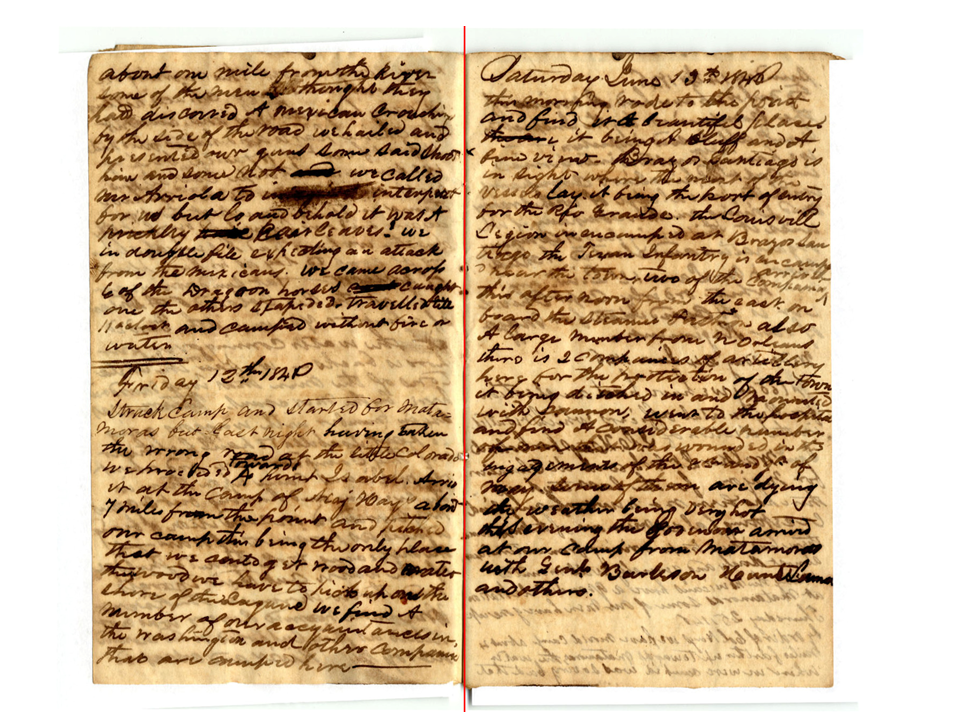 about one mile from the River
some of the men thought they
had discovered A Mexican Crouching
by the side of the road we hailed and
presented our guns some said shoot
him and some not we called
Mr Arriola to interpret
for us but lo and behold it was A
prickley Pair leaves. we
in double file expecting an attack
from the Mexicans. we came across
6 of the Dragoon horses caught
one the others Stampeded. travelled till
11 oclock and camped without fire or
water
Friday 12th 184
Struck Camp and started for Mata-
moras but last night having taken
the wrong road at the little Colorado
we towards point Isabel. Arriv
it at the Camp of Maj Hays about
7 miles from the point and pitched
our camp this being the only place
that we could get wood and water
the wood we have to pick up on the
shore of the Laguna we find A
number of our acquaintances in
the Washington and other Companies
that are camped here
Saturday June 13th 184
this morning rode to the point
and find it A beautiful place
it being A Bluff and A
fine view. Brazos Santiago is
in sight where the most of the
vessels lay. it being the port of entry
for the Rio Grande. the Louisvill
Legion in encamped at Brazos San
tiago the Texan Infantry is encamp
near the town. two of the Companies arrived
this afternoon from the east on
board the Steamer also
A large number from N Orleans
there is 2 Companies of artillery
here for the protection of the town
it being ditched in and
with Cannon, went to the hospital
and find A considerable number
wounded in the
engagements of the 8 and 9th of
May. Some of them are dying
the weather being very hot
this evening the Governor arrived
at our Camp from Matamoras
with Genl. Burleson
and others.